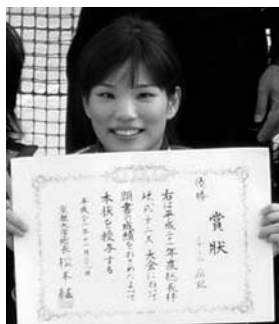 賞状
優勝
右は平成二十一年度総長杯
硬式テニス大会において
頭書の成績をおさめたので
本状を授与する
平成二十一年十二月
京都大学総長 松本紘